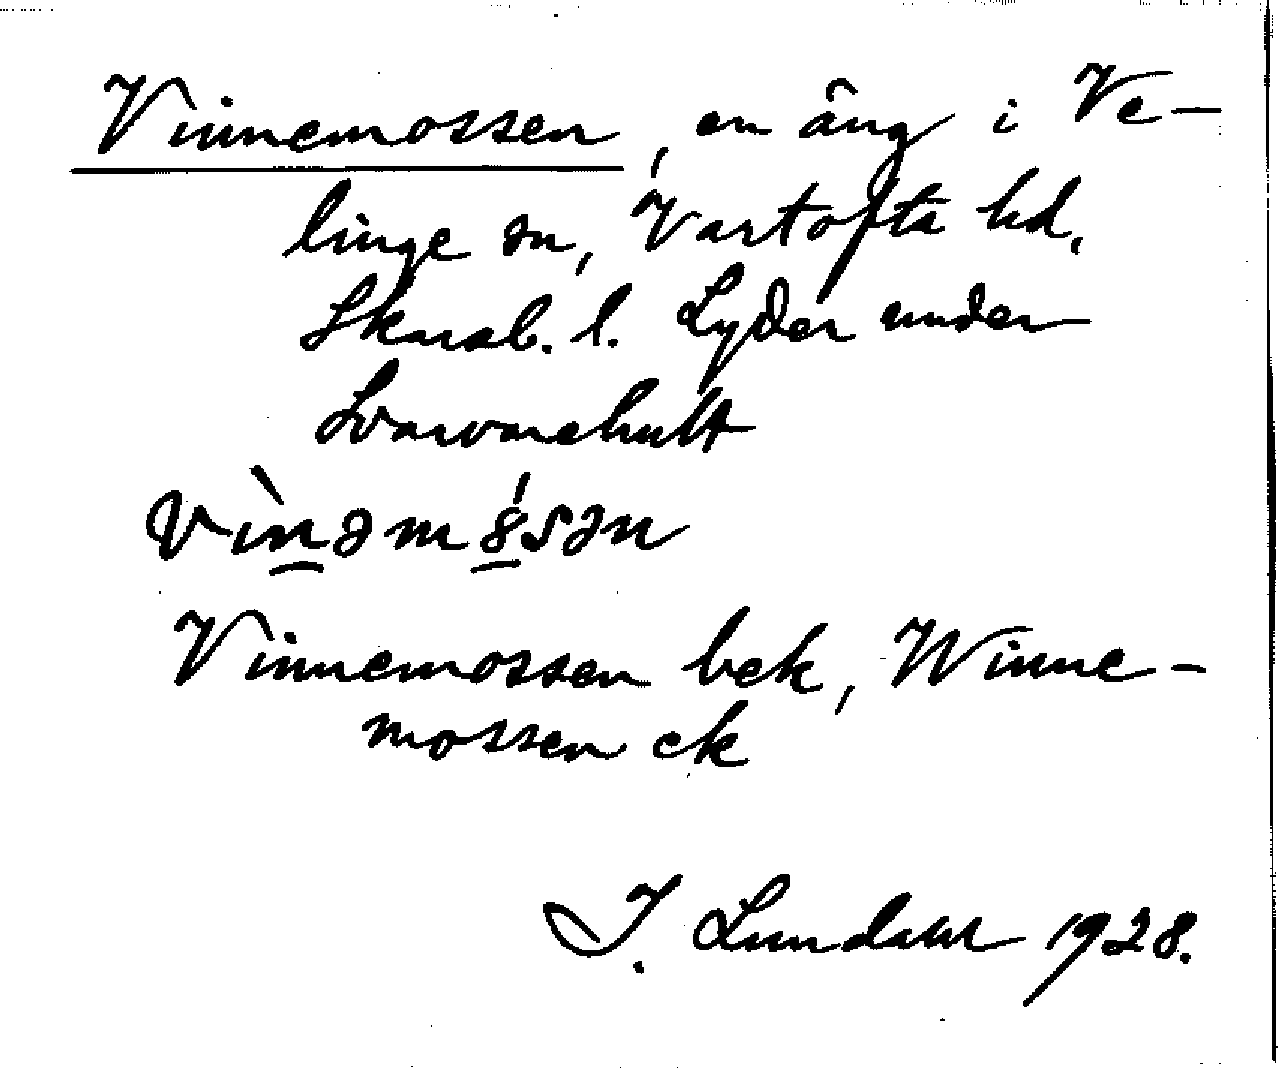 Vinnemossen, en äng i Ve-
linge sn, Vartofta hd,
Skarab. l. Lyder under
Svarvarehult
vìnəmȣ́sən
Vinnemossen bek, Winne-
mossen ek
I. Lundahl 1928.